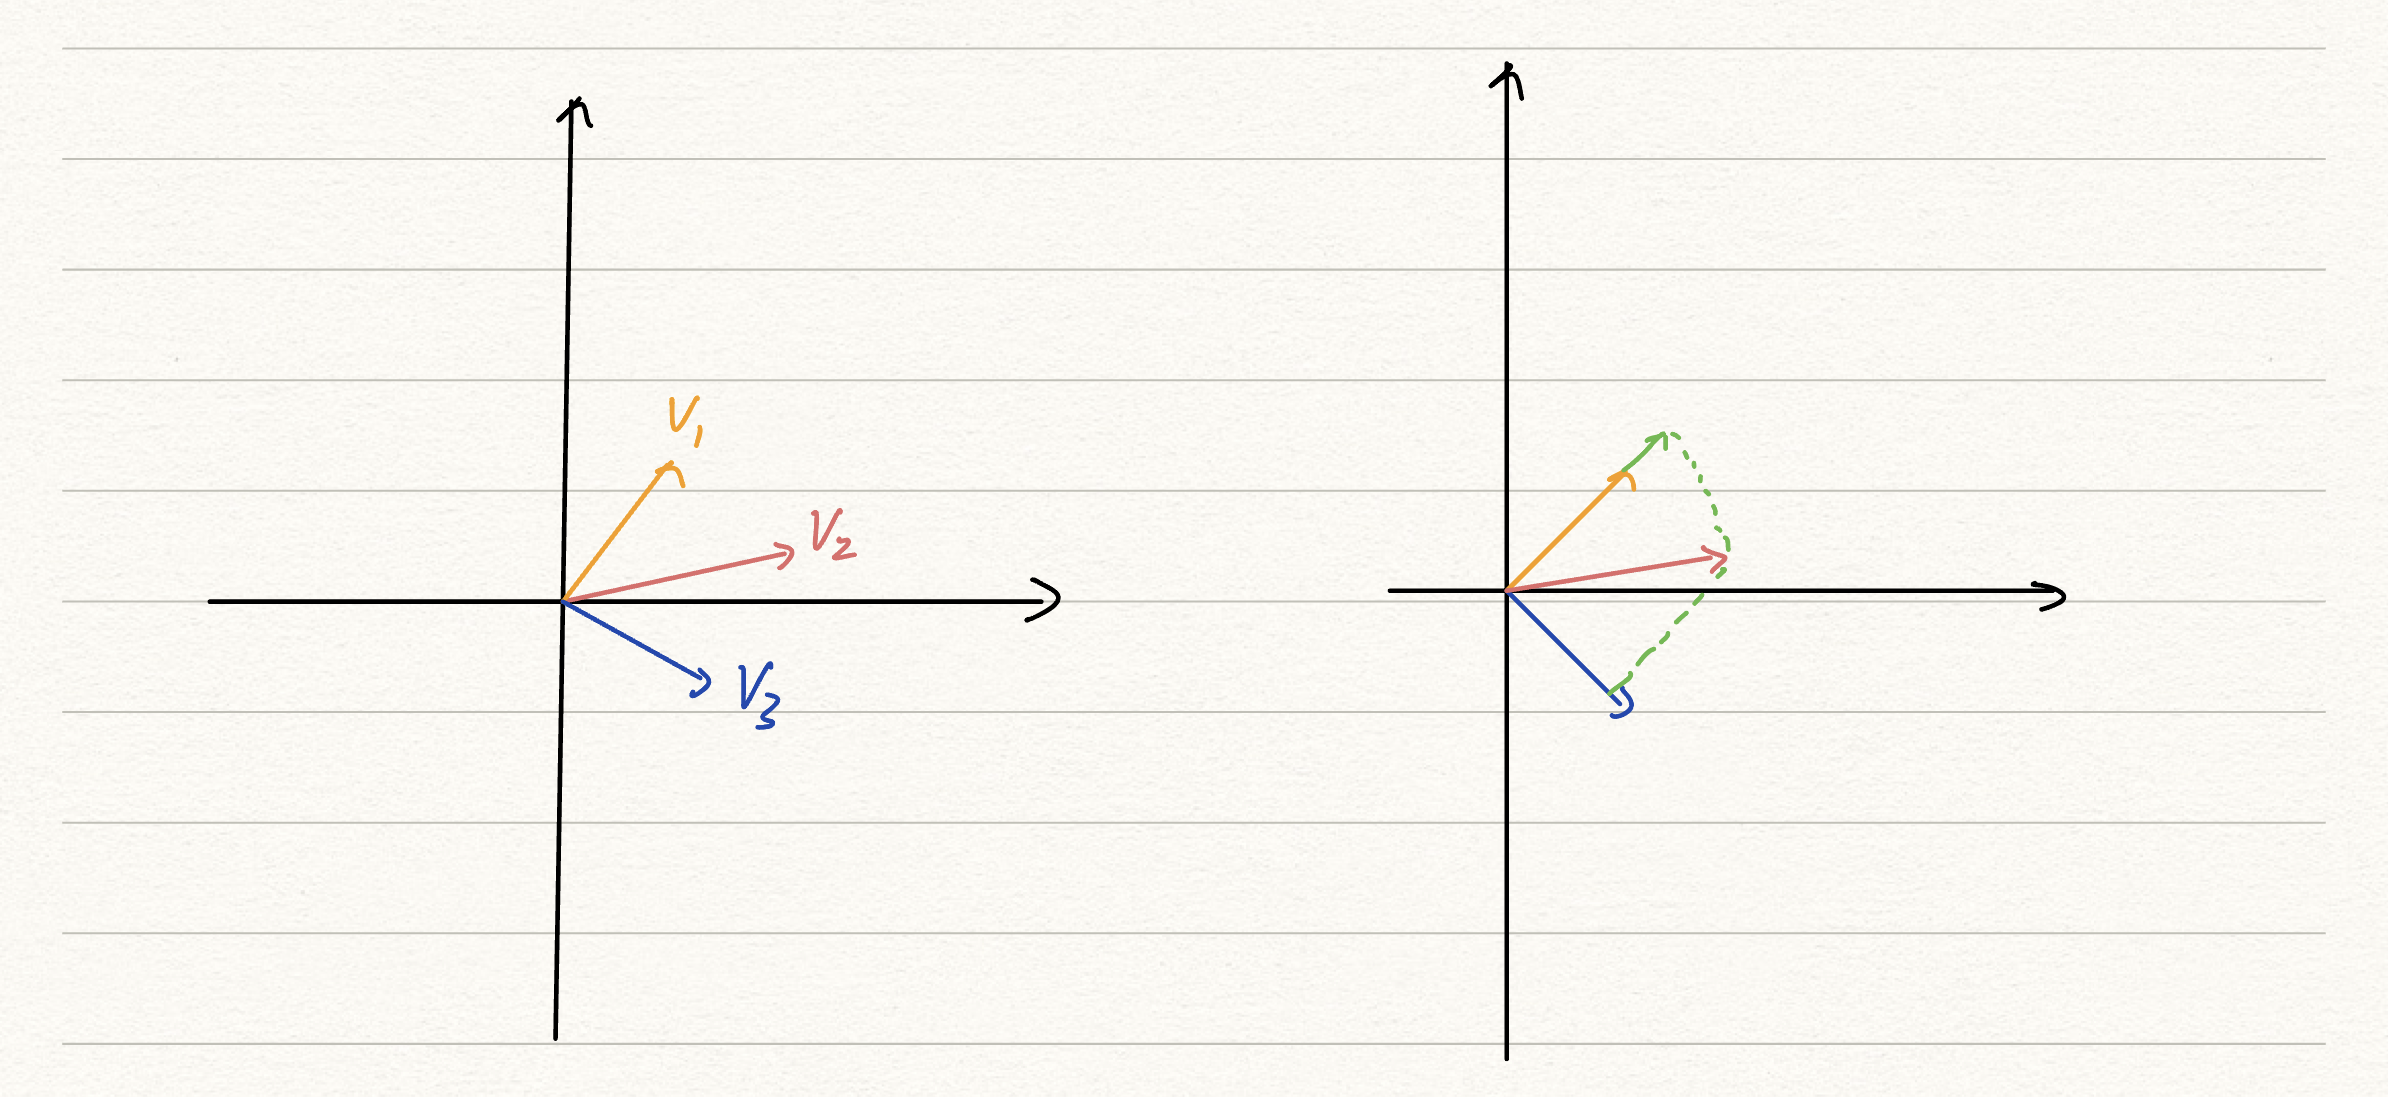 V₁
V₂
V₃